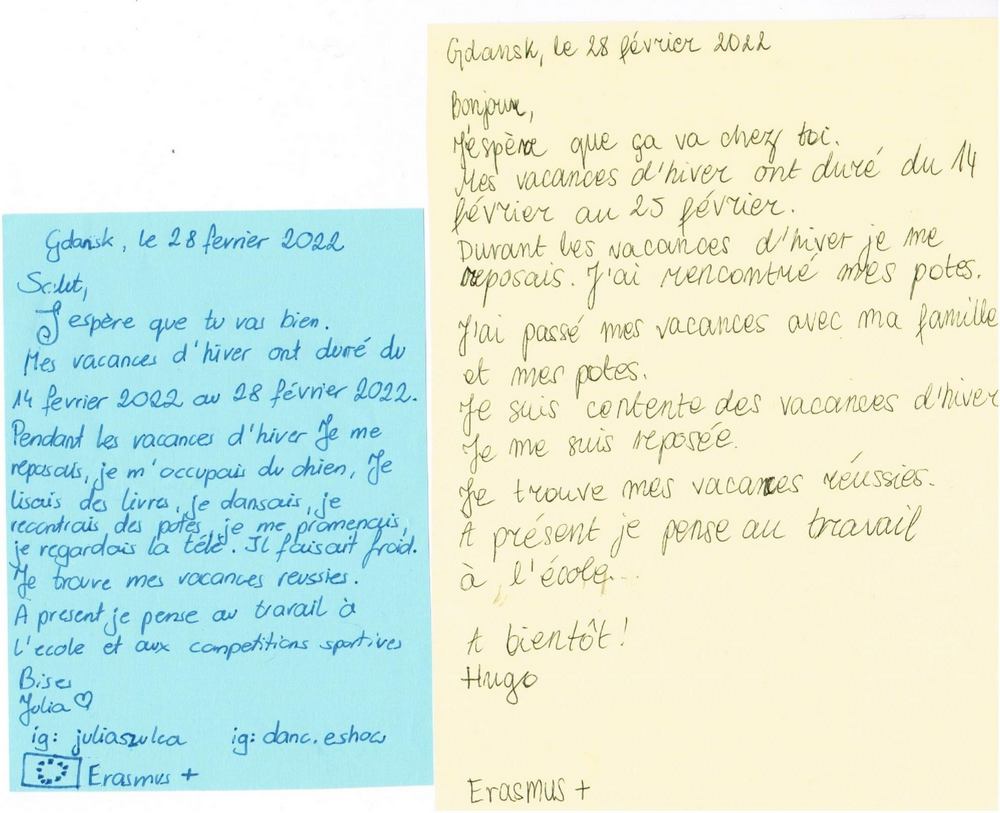 Gdansk, le 28 fevrier 2022
Salut,
J'espère que tu vas bien.
Mes vacances d'hiver ont duré du
14 fevrier 2022 au 28 février 2022.
Pendant les vacances d'hiver Je me
reposais, je m'occupais du chien, Je
lisais des livres, je dansais, je
recontrais des potes, je me promenais,
je regardais la télé. Il faisait froid.
Je trouve mes vacances reussies.
A present je pense au travail à
l'ecole et aux competitions sportives
Bises
Julia ♡
ig: juliaszulca ig: danc.eshow
Erasmus +
Gdansk, le 28 février 2022
Bonjour,
J'éspère que ça va chez toi.
Mes vacances d'hiver ont duré du 14
février au 25 février.
Durant les vacances d'hiver je me
reposais. J'ai rencontré mes potes.
J'ai passé mes vacances avec ma famille
et mes potes.
Je suis contente des vacances d'hiver
Je me suis reposée.
Je trouve mes vacances réussies.
A présent je pense au travail
à l'école.
A bientôt!
Hugo
Erasmus +